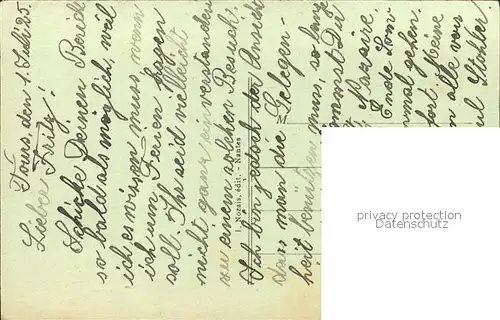 Tours den 1. Juli 25.
Lieber Fritz!
Schicke Deinen Bericht
so bald als möglich, weil
ich es wissen muss wenn
ich um Ferien fragen
soll. Ihr seid vielleicht
nicht ganz einverstanden
einem solchen Besuch.
Ich bin jedoch der Ansicht
dass man die Gelegen-
heit benützen muss, so lange
kommst Du
Nazaire.
Ende
mal gehen.
fort. Meine
an alle von
Nozais, édit. - Nantes
privacy protection
Personenschutz